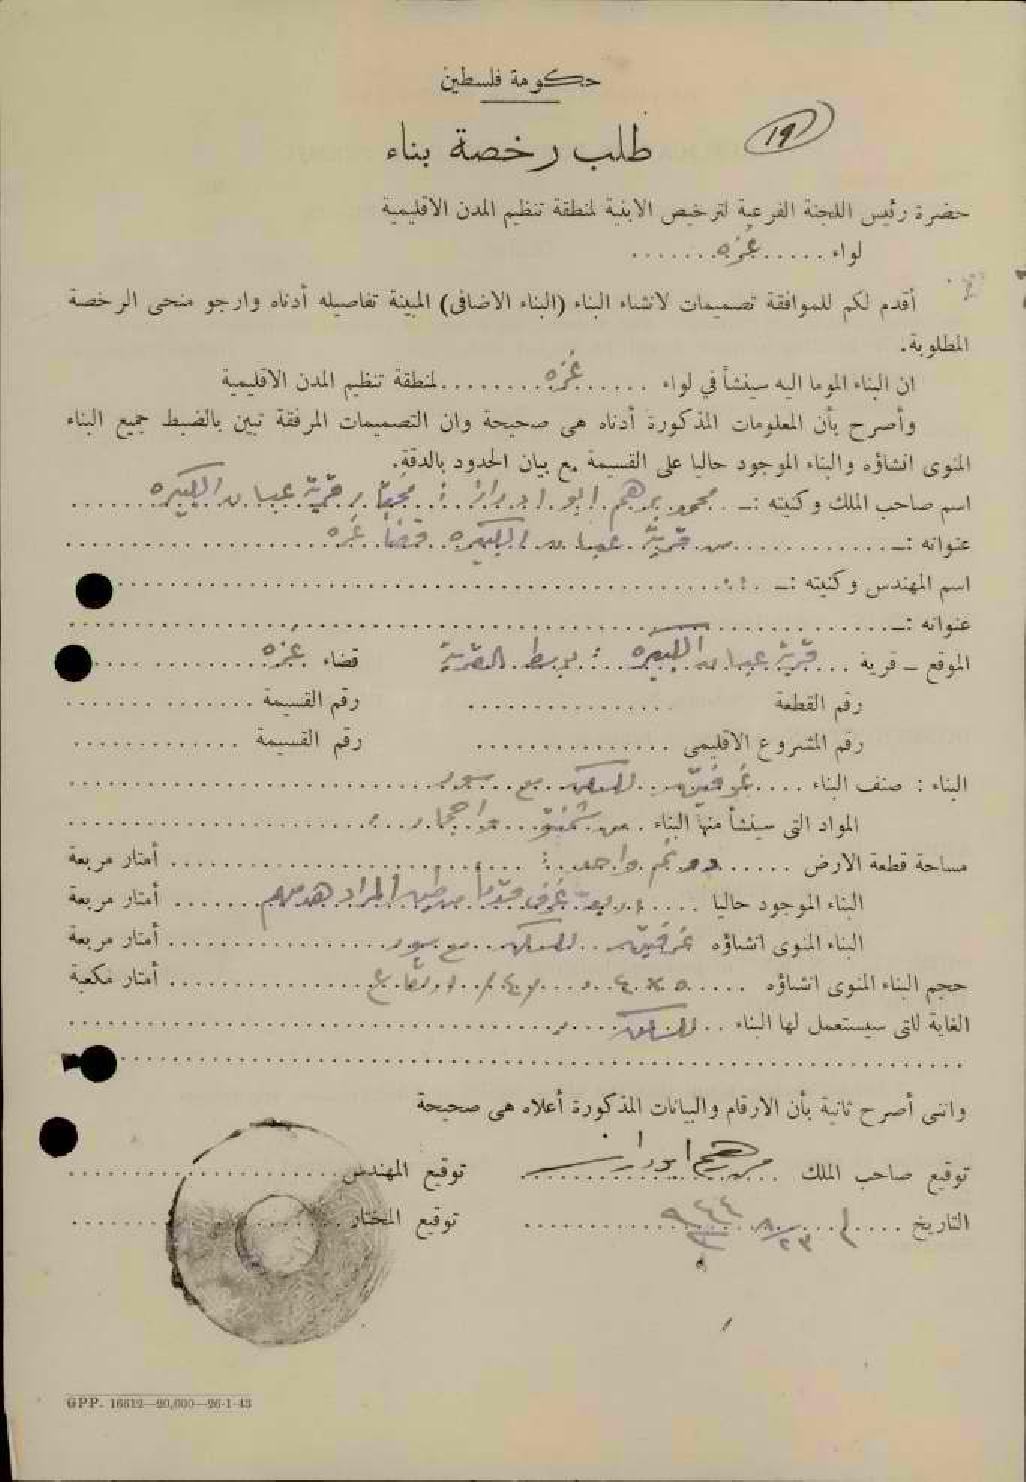 حكومة فلسطين
١٩
طلب رخصة بناء
حضرة رئيس اللجنة الفرعية لترخيص الابنية لمنطقة تنظيم المدن الاقليمية
لواء ..... غزه .......
أقدم لكم للموافقة تصميمات لانشاء البناء (البناء الاضافى) المبينة تفاصيله أدناه وارجو منحى الرخصة
المطلوبة.
ان البناء الموما اليه سينشأ في لواء ..... غزه ........ لمنطقة تنظيم المدن الاقليمية
وأصرح بأن المعلومات المذكورة أدناه هى صحيحة وان التصميمات المرفقة تبين بالضبط جميع البناء
المنوى انشاؤه والبناء الموجود حاليا على القسيمة مع بيان الحدود بالدقة.
اسم صاحب الملك وكنيته :ـ محمد برهم ابو قرية عبسان الكبيره
عنوانه :ـ من قرية عبسان الكبيره قضا غزه
اسم المهندس وكنيته :ـ
عنوانه :ـ
الموقع ـ قرية ... قرية عبسان الكبيره بوسط القرية قضاء غزه
رقم القطعة ................ رقم القسيمة ................
رقم المشروع الاقليمى ................ رقم القسيمة ................
البناء : صنف البناء .... غرفتين للسكن مع سور
المواد التى سينشأ منها البناء . من
مساحة قطعة الارض ...... دونم واحد ...... أمتار مربعة
البناء الموجود حاليا .... غرف من طين المراد هدمهم أمتار مربعة
البناء المنوى انشاؤه غرفتين للسكن مع سور أمتار مربعة
حجم البناء المنوى انشاؤه ..... ٥ × ٤ ارتفاع ٤ أمتار مكعبة
الغاية لاتى سيستعمل لها البناء .. للسكن
وانى أصرح ثانية بأن الارقام والبيانات المذكورة أعلاه هى صحيحة
توقيع صاحب الملك توقيع المهندس
التاريخ ٢٣/٨ ٩٤٤ توقيع المختار
GPP. 16612—20,000—26-1-43